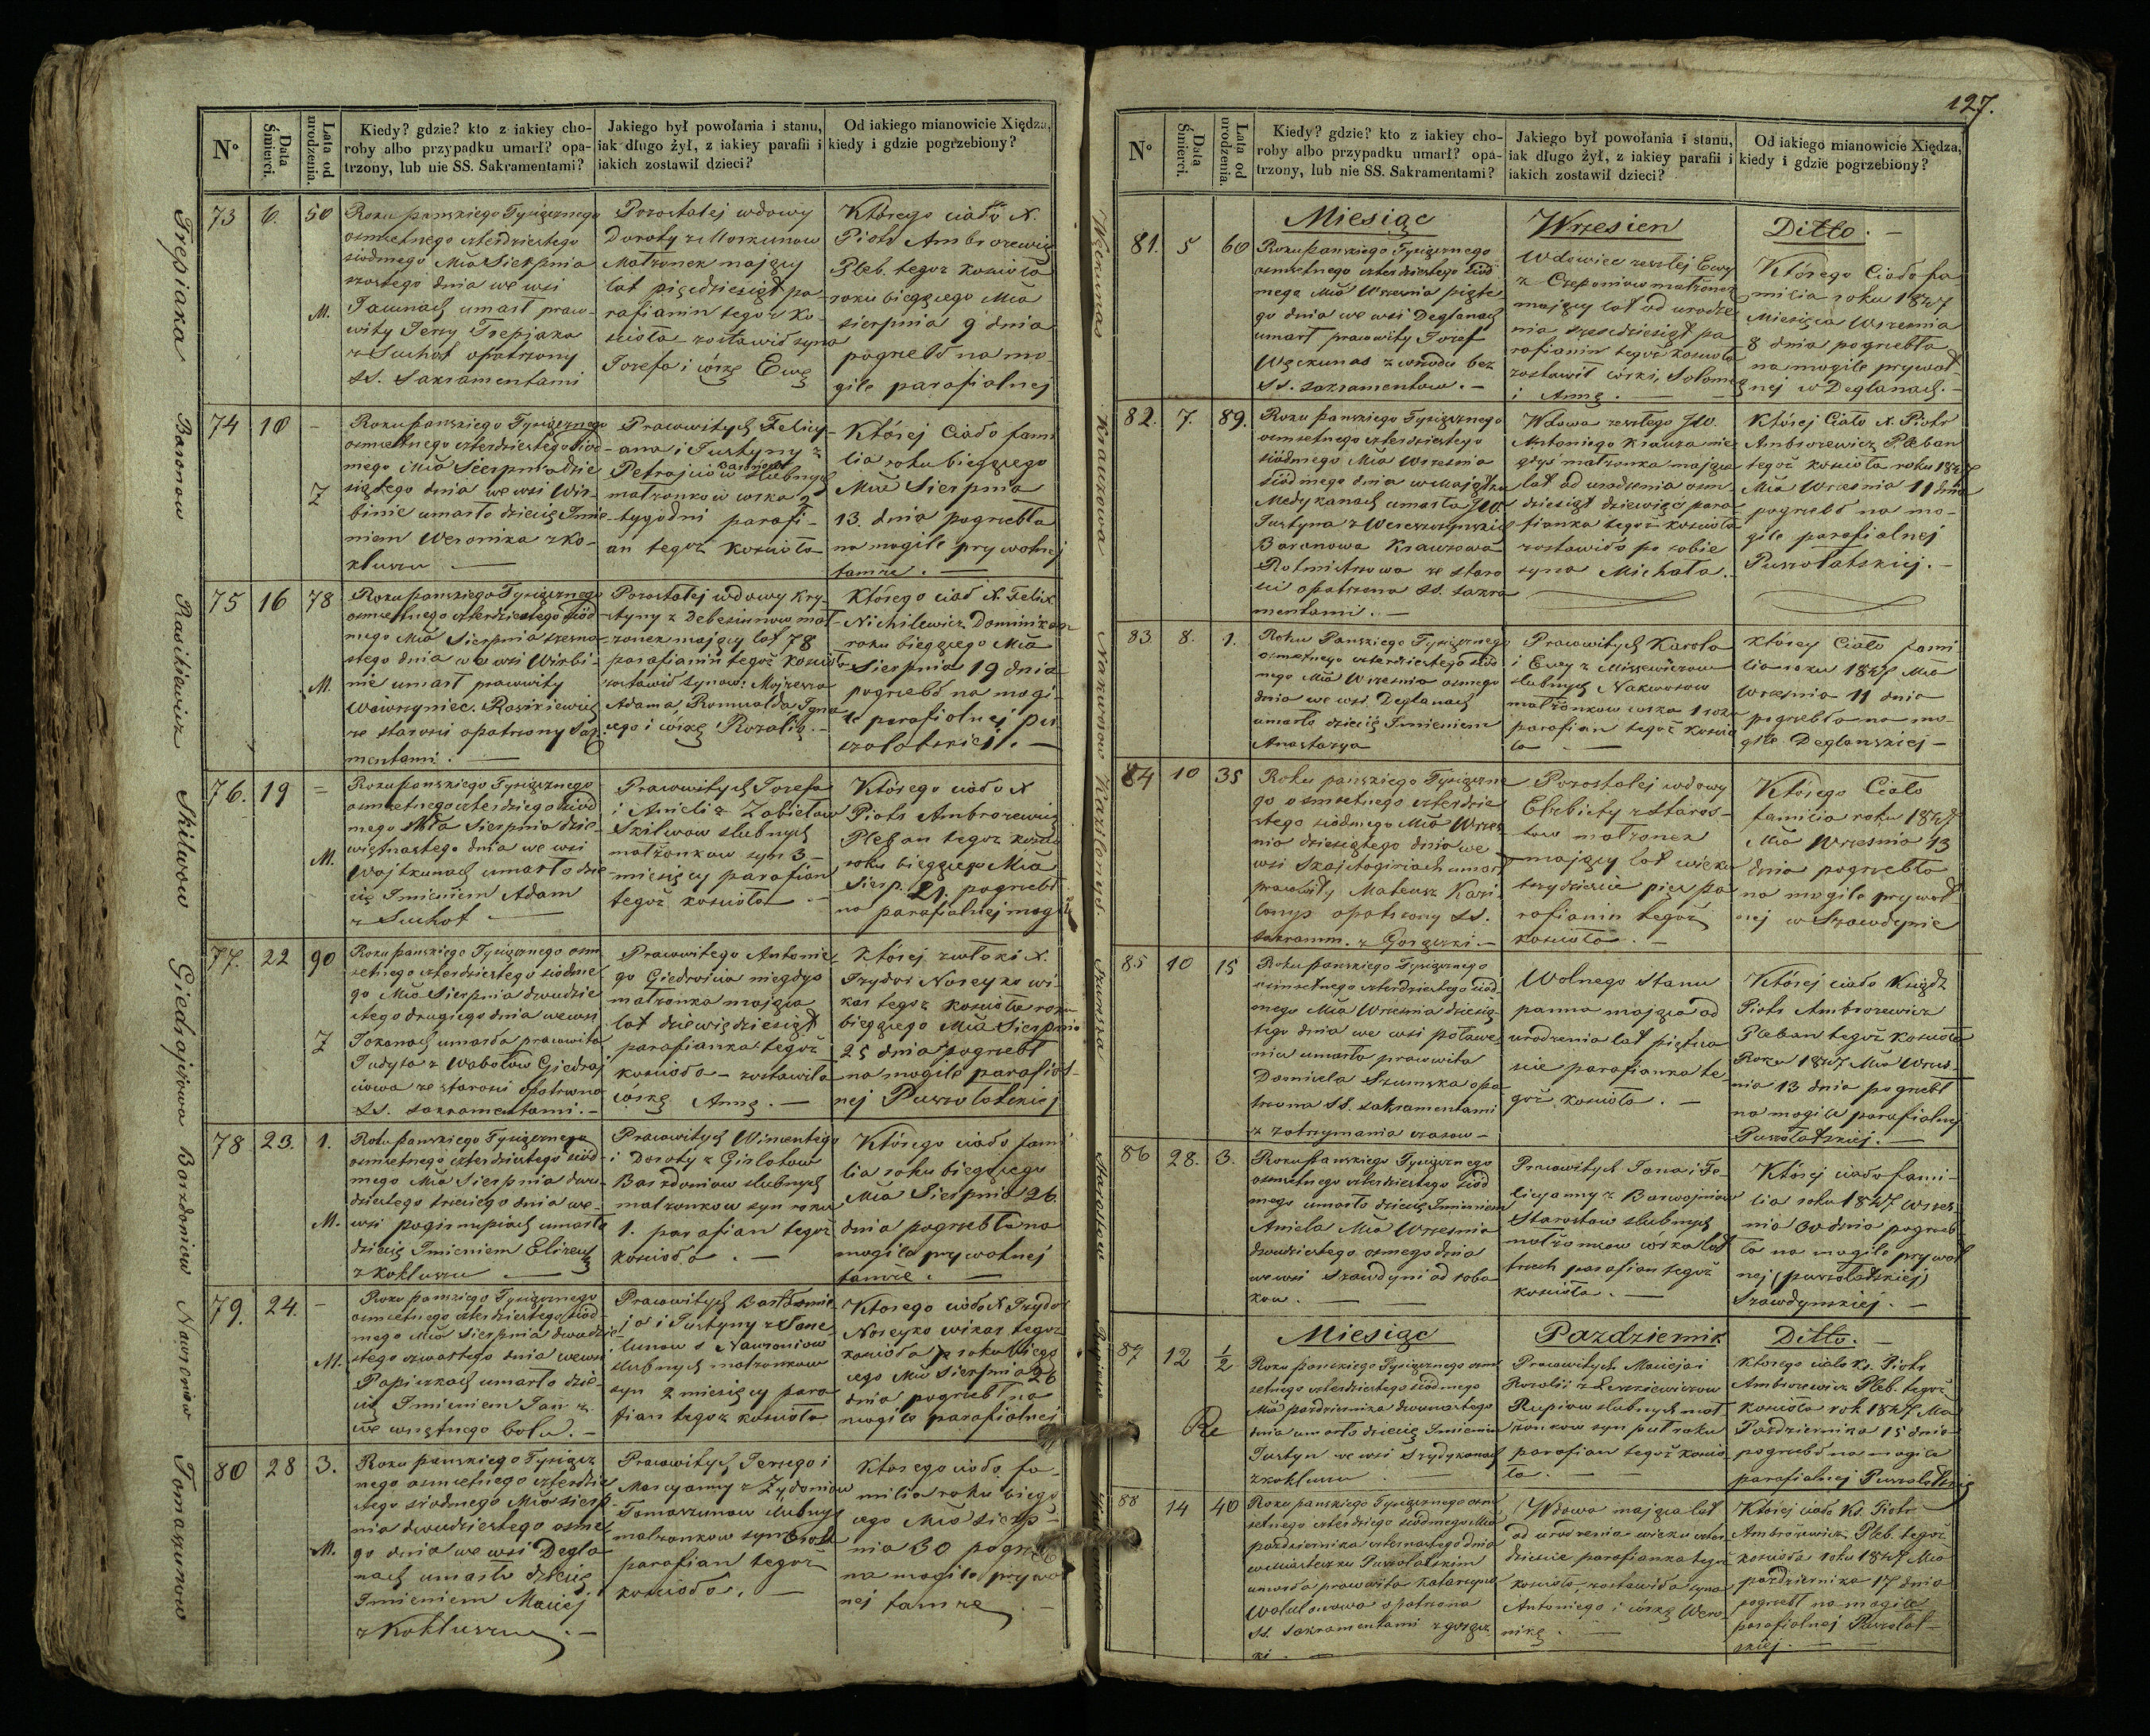 127.
N°
Data Śmierci.
Lata od urodzenia.
Kiedy? gdzie? kto z iakiey cho-
roby albo przypadku umarł? opa-
trzony, lub nie SS. Sakramentami?
Jakiego był powołania i stanu,
iak długo żył, z iakiey parafii i
iakich zostawił dzieci?
Od iakiego mianowicie Xiędza,
kiedy i gdzie pogrzebiony?
73
6.
50
M.
Roku pańskiego Tysiącznego
osmsetnego czterdziestego
siódmego Mca Sierpnia
szostego dnia we wsi
umarł praco-
wity Jerzy Trepiaka
z Suchot opatrzony
SS. Sakramentami
Pozostałej wdowy
Doroty z
Małzonek mający
lat pięćdziesiąt pa-
rafianin tegoz Ko-
scioła zostawił syna
Jozefa i córkę Ewę
Którego ciało X.
Piotr Ambrozewicz
Pleb. tegoz kościoła
roku biegącego Mca
sierpnia 9 dnia
pogrzebł na mo-
gile parafialnej
74
10
-
Z
Roku pańskiego Tysiącznego
osmsetnego czterdziestego siod-
mego Mca Sierpnia dzie
siątego dnia we wsi Wir-
binie umarło dziecię Imie-
niem Weronika z ko-
kluszu
Pracowitych Felicy-
ana i Justyny z
slubnych
małzonkow corka 2
tygodni parafi-
an tegoz Kościoła
Której Ciało fami
lia roku biegącego
Mca Sierpnia
13. dnia pogrzebła
na mogile prywatnej
tamze.
75
16
78
M.
Roku pańskiego Tysiącznego
osmsetnego czterdziestego siód
mego Mca Sierpnia szesna-
stego dnia we wsi Wirbi-
nie umarł pracowity
Wawrzyniec Rasikiewicz
ze starosci opatrzony Sa
mentami.
Pozostałej wdowy Kry-
styny z mał-
zonek mający lat 78
parafianin tegoż kościoła
zostawił synow: Mojzesza
Adama, Romualda, Igna
cego i córkę Rozalię.
Którego ciało X. Felix
Nichilewicz Dominikan
roku biegącego Mca
Sierpnia 19 dnia
pogrzebł na mogi-
le parafialnej Pu-
szołatskiej.
76.
19
=
M.
Roku pańskiego Tysiącznego
osmsetnego czterdziego siod
mego Mca Sierpnia dzie-
więtnastego dnia we wsi
Wojtkunach umarło dzie
cię Imieniem Adam
z Suchot
Pracowitych Jozefa
i Anieli z Zabielow
Szkilwow slubnych
małżonkow syn 3-
miesięcy parafian
tegoż kościoła
Którego ciało X
Piotr Ambrozewicz
Pleban tegoz kościo
roku biegącego Mca
Sierp. 21. pogrzebł
na parafialnej mogile
77.
22
90
Z
Roku pańskiego Tysiącznego osm
setnego czterdziestego siodme
go Mca Sierpnia dwudzie
stego drugiego dnia we wsi
umarła pracowita
Judyta z Giedraj
ciowa ze starosci opatrzona
SS. sakramentami.
Pracowitego Antonie
go Giedrojcia niegdys
małzonka mająca
lat dziewięćdziesiąt
parafianka tegoż
kościoła - zostawiła
córkę Annę.
Której zwłoki X.
Izydor Noreyko wi-
kar tegoz Kościoła roku
biegącego Mca Sierpnia
25 dnia pogrzebł
na mogile parafial-
nej Puszołatskiej
78
23.
1.
M.
Roku pańskiego Tysiącznego
osmsetnego czterdziestego siód-
mego Mca Sierpnia dwu-
dziestego trzeciego dnia we
wsi umarło
dziecię Imieniem Elizeusz
z Kokluszu
Pracowitych Wincentego
i Doroty z
slubnych
małzonkow syn roku
1. parafian tegoż
kościoła.
Którego ciało fami
lia roku biegącego
Mca Sierpnia 26
dnia pogrzebła na
mogile prywatnej
tamże.
79.
24.
-
M.
Roku pańskiego Tysiącznego
osmsetnego czterdziestego siód
mego Mca Sierpnia dwudzie
stego czwartego dnia we wsi
umarło dzie
cię Imieniem Jan z
wewnętrznego bolu.
Pracowitych Bartłomie
ja i Justyny z
Nawroniow
slubnych małzonkow
syn 2 miesięcy para
fian tegoz kościoła
Ktorego ciało X Izydor
Noreyko wikar tegoz
kościoła roku biegą
cego Mca Sierpnia 26
dnia pogrzebł na
mogile parafialnej
80
28
3.
M.
Roku pańskiego Tysiącz
nego osmsetnego czterdzie
stego siodmego Mca sierp
nia dwudziestego osme
go dnia we wsi Degla-
nach umarło dziecię
Imieniem Maciej
z Kokluszu.
Pracowitych Jerzego i
Marcyanny z
Tomaszunow slubnych
małzonkow syn 3 lat
parafian tegoż
kościoła.
Którego ciało fa-
milia roku biegą
cego Mca sierp-
nia 30 pogrzebła
na mogile prywat
nej tamze.
Trepiaka
Baronow
Rasikiewicz
Skilwow
Giedrajciowa
Nawroniow
Tomaszunow
N°
Data Śmierci.
Lata od urodzenia.
Kiedy? gdzie? kto z iakiey cho-
roby albo przypadku umarł? opa-
trzony, lub nie SS. Sakramentami?
Jakiego był powołania i stanu,
iak długo żył, z iakiey parafii i
iakich zostawił dzieci?
Od iakiego mianowicie Xiędza,
kiedy i gdzie pogrzebiony?
Miesiąc
Wrzesien
Ditto. -
81.
5
60
Roku pańskiego Tysiącznego
osmsetnego czterdziestego siód
mego Mca Wrzesnia piąte
go dnia we wsi Deglanach
umarł pracowity Jozef
z wrzodu bez
SS. sakramentow. -
Wdowiec zeszłej Ewy
z małzonek
mający lat od urodze
nia sześćdziesiąt pa
rafianin tegoż kościoła
zostawił córki, Salomeę
i Annę.
Którego Ciało fa
milia roku 1847
Miesiąca Wrzesnia
8 dnia pogrzebła
na mogile prywat
nej w Deglanach. -
82.
7.
89.
Roku pańskiego Tysiącznego
osmsetnego czterdziestego
siódmego Mca Wrzesnia
siódmego dnia w Majątku
Medykanach umarła JW.
Justyna z Wereszczynskich
Baranowa Krauzowa
Rotmistrzowa ze staro
sci opatrzona SS. sakra
mentami. -
Wdowa zeszłego JW.
Antoniego Krauza nie
gdyś małzonka mająca
lat od urodzenia osm
dziesiąt dziewięć para
fianka tegoż kościoła
zostawiła po sobie
syna Michała.
Której Ciało X. Piotr
Ambrozewicz Pleban
tegoż kościoła roku 1847
Mca Wrzesnia 11 dnia
pogrzebł na mo-
gile parafialnej
Puszołatskiej. -
83
8.
1.
Roku Pańskiego Tysiącznego
osmsetnego czterdziestego siód
mego Mca Wrzesnia osmego
dnia we wsi Deglanach
umarło dziecię Imieniem
Anastazya
Pracowitych Karola
i Ewy z
slubnych Nakwosow
małżonkow corka 1 roku
parafian tegoż koscio
ła
Którey Ciało fami
lia roku 1847 Mca
Wrzesnia 11 dnia
pogrzebła na mo-
gile Deglanskiej -
84
10
35
Roku pańskiego Tysiączne
go osmsetnego czterdzie
stego siódmego Mca Wrzes
nia dziesiątego dnia we
wsi umarł
pracowity Mateusz
opatrzony SS.
sakramm. z Gorączki. -
Pozostałej wdowy
Elzbiety z Staros-
tow małzonek
mający lat wieku
trzydziescie pięć pa
rafianin tegoż
kościoła. -
Którego Ciało
familia roku 1847
Mca Wrzesnia 13
dnia pogrzebła
na mogile prywat
nej w Szawdynie
85
10
15
Roku pańskiego Tysiącznego
osmsetnego czterdziestego siód-
mego Mca Wrzesnia dziesią
tego dnia we wsi
umarła pracowita
Domicela Szumska opa
trzona SS. sakramentami
z zatrzymania czasow -
Wolnego Stanu
panna mająca od
urodzenia lat piętna
scie parafianka te
goż kościoła. -
Której ciało Ksiądz
Piotr Ambrozewicz
Pleban tegoż Kościoła
Roku 1847 Mca Wrzes-
nia 13 dnia pogrzebł
na mogile parafialnej
Puszołatskiej. -
86
28.
3.
Roku pańskiego Tysiącznego
osmsetnego czterdziestego siód
mego umarło dziecię Imieniem
Aniela Mca Wrzesnia
dwudziestego osmego dnia
we wsi Szawdyni od roba
kow.
Pracowitych Jana i Fe
licyanny z
Starostow slubnych
małżonkow córka lat
trzech parafian tegoż
kościoła. -
Której ciało fami-
lia roku 1847 Wrzes
nia 30 dnia pogrzeb
ła na mogile prywat
nej (puszołatskiej)
Szawdynskiej. -
Miesiąc
Pazdziernik
Ditto. -
87
12
1/2
Roku pańskiego Tysiącznego osm
setnego czterdziestego siódmego
Mca pazdziernika dwunastego
dnia umarło dziecię Imieniem
Justyn we wsi
z kokluszu
Pracowitych Macieja i
Rozalii z Leszkiewiczow
Rupiow slubnych mał
żonkow syn puł roku
parafian tegoż koscio
ła.
Ktorego ciało Ks. Piotr
Ambrozewicz Pleb. tegoż
kościoła rok 1847 Mca
Pazdziernika 15 dnia
pogrzebł na mogile
parafialnej Puszołatskiej
88
14
40
Roku pańskiego Tysiącznego osm
setnego czterdziego siódmego Mca
pazdziernika czternastego dnia
w miasteczku Puszołatskim
umarła pracowita Katarzyna
opatrzona
SS. Sakramentami z gorącz
ki. -
Wdowa mająca lat
od urodzenia wieku czter
dziescie parafianka tegoż
kościoła, zostawiła syna
Antoniego i córkę Wero
nikę.
Ktorej ciało Ks. Piotr
Ambrożewicz Pleb. tegoż
kościoła roku 1847 Mca
pazdziernika 17 dnia
pogrzebł na mogile
parafialnej Puszołat-
skiej.
Krauzowa
Nakwosow